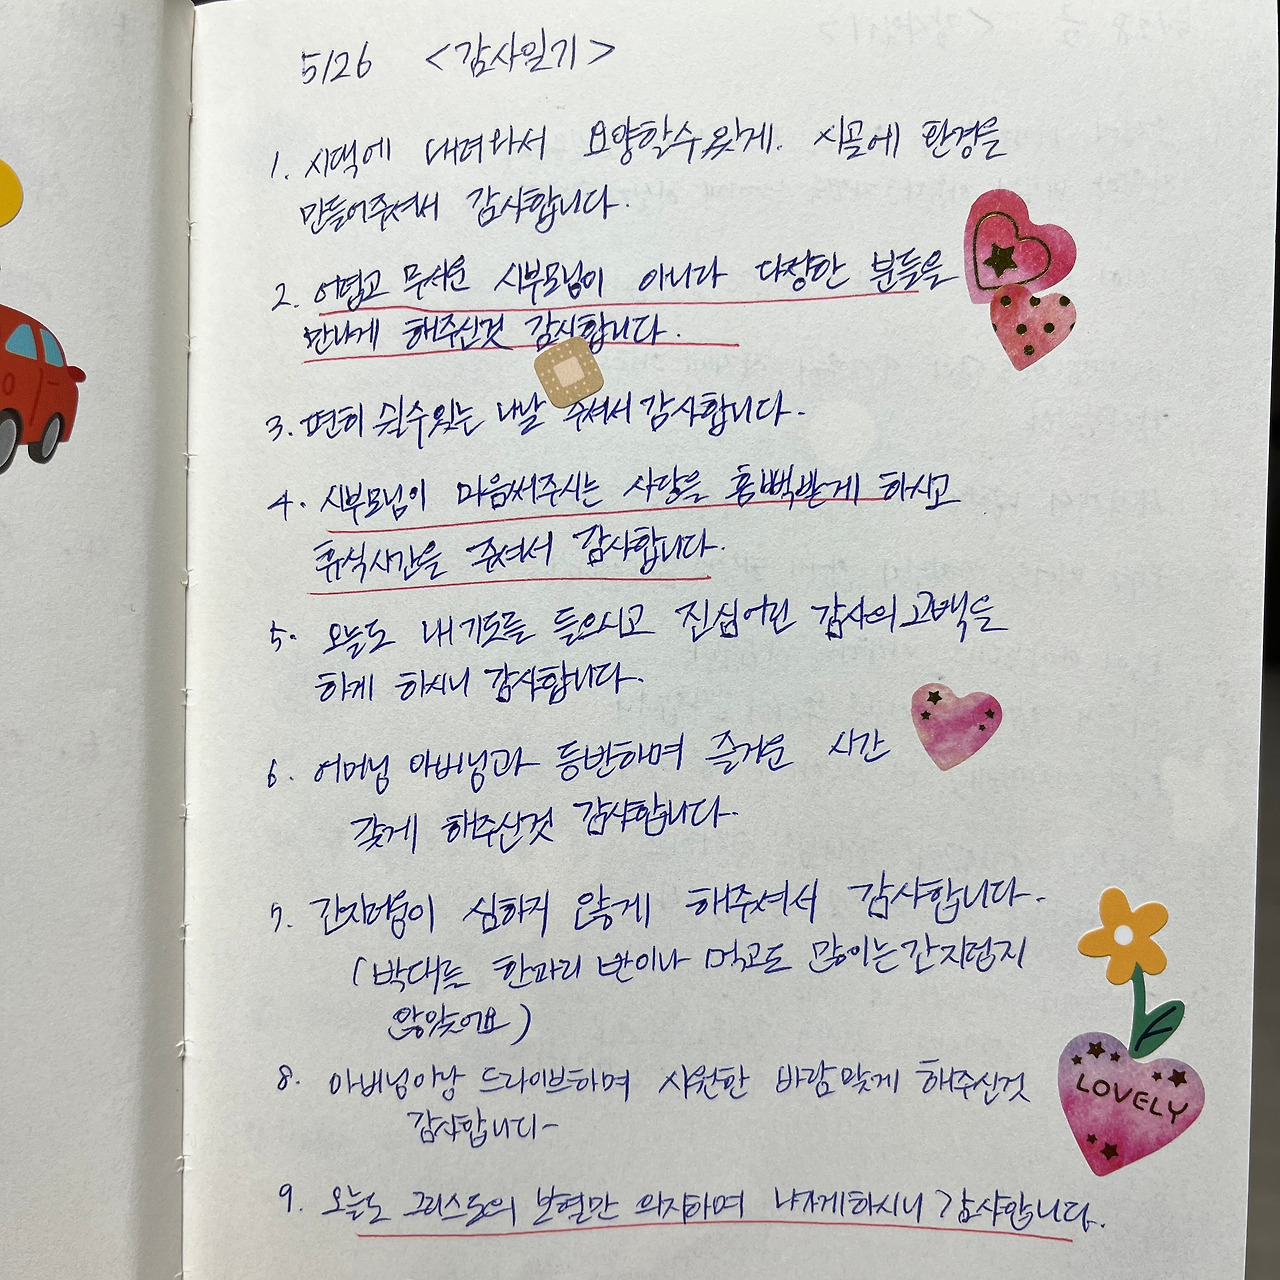 5/26 <감사일기>
1. 시댁에 내려와서 요양할수있게. 시골에 환경을
만들어주셔서 감사합니다.
2. 어렵고 무서운 시부모님이 아니라 다정한 분들을
만나게 해주신것 감사합니다.
3. 편히 쉴수있는 나날 주셔서 감사합니다.
4. 시부모님이 마음써주시는 사랑을 흠뻑받게 하시고
휴식시간을 주셔서 감사합니다.
5. 오늘도 내 기도를 들으시고 진심어린 감사의 고백을
하게 하시니 감사합니다.
6. 어머님 아버님과 등반하며 즐거운 시간
갖게 해주신것 감사합니다.
7. 간지러움이 심하지 않게 해주셔서 감사합니다.
(박대를 한마리 반이나 먹고도 많이는 간지럽지
않았어요)
8. 아버님이랑 드라이브하며 시원한 바람맞게 해주신것
감사합니다~
9. 오늘도 그리스도의 보혈만 의지하며 나가게하시니 감사합니다.
LOVELY